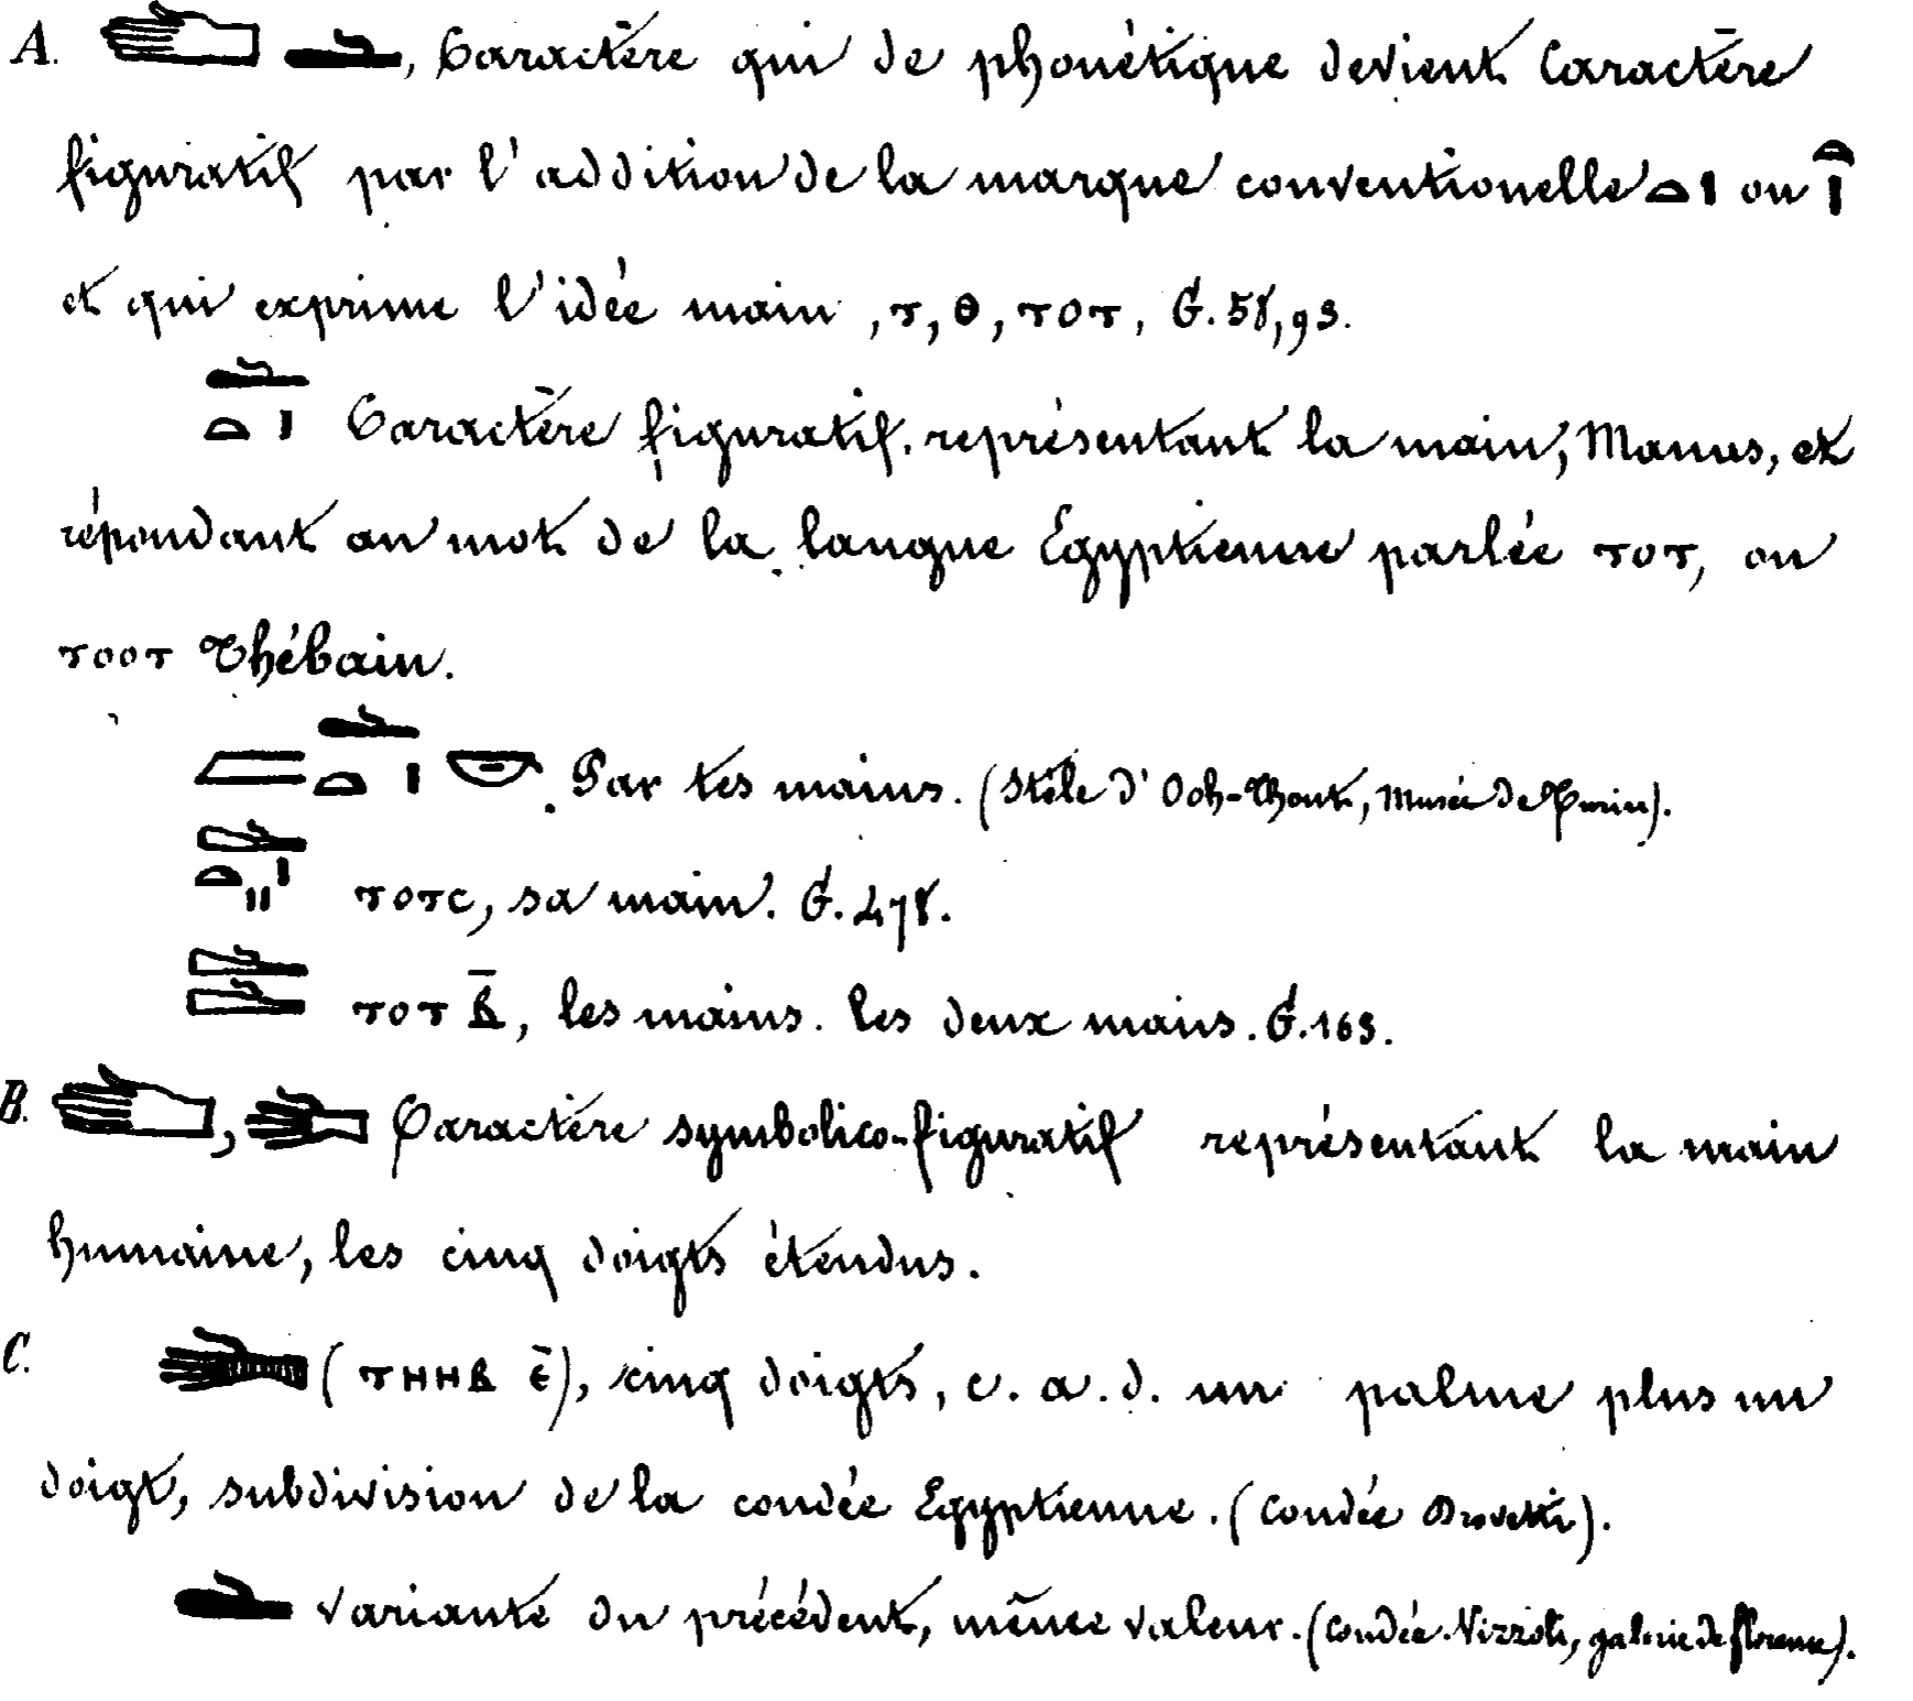 A. 𓂧 𓂧, Caractère qui de phonétique devient Caractère
figuratif par l'addition de la marque conventionelle 𓏏𓏤 ou 𓏏𓏤
et qui exprime l'idée main, ⲧ, ⲑ, ⲧⲟⲧ, G. 58, 93.
𓂧𓏏𓏤 Caractère figuratif, représentant la main, Manus, et
répondant au mot de la langue Egyptienne parlée ⲧⲟⲧ, ou
ⲧⲟⲟⲧ Thébain.
𓐝𓂧𓏏𓏤𓎡. Par tes mains. (Stèle d'Ooh-Thout, Musée de Turin).
𓂧𓏏𓏤𓏭 ⲧⲟⲧⲥ, sa main. G. 478.
𓂧𓂧 ⲧⲟⲧ ⲃ̄, les mains. les deux mains. G. 163.
B. 𓂧, 𓂧 Caractère symbolico-figuratif représentant la main
humaine, les cinq doigts étendus.
C. 𓂧 (ⲧⲏⲏⲃ ⲉ̄), cinq doigts, c. a. d. un palme plus un
doigt, subdivision de la coudée Egyptienne. (Coudée Drovetti).
𓂧 Variante du précédent, même valeur. (Coudée Nizzoli, galerie de florence).